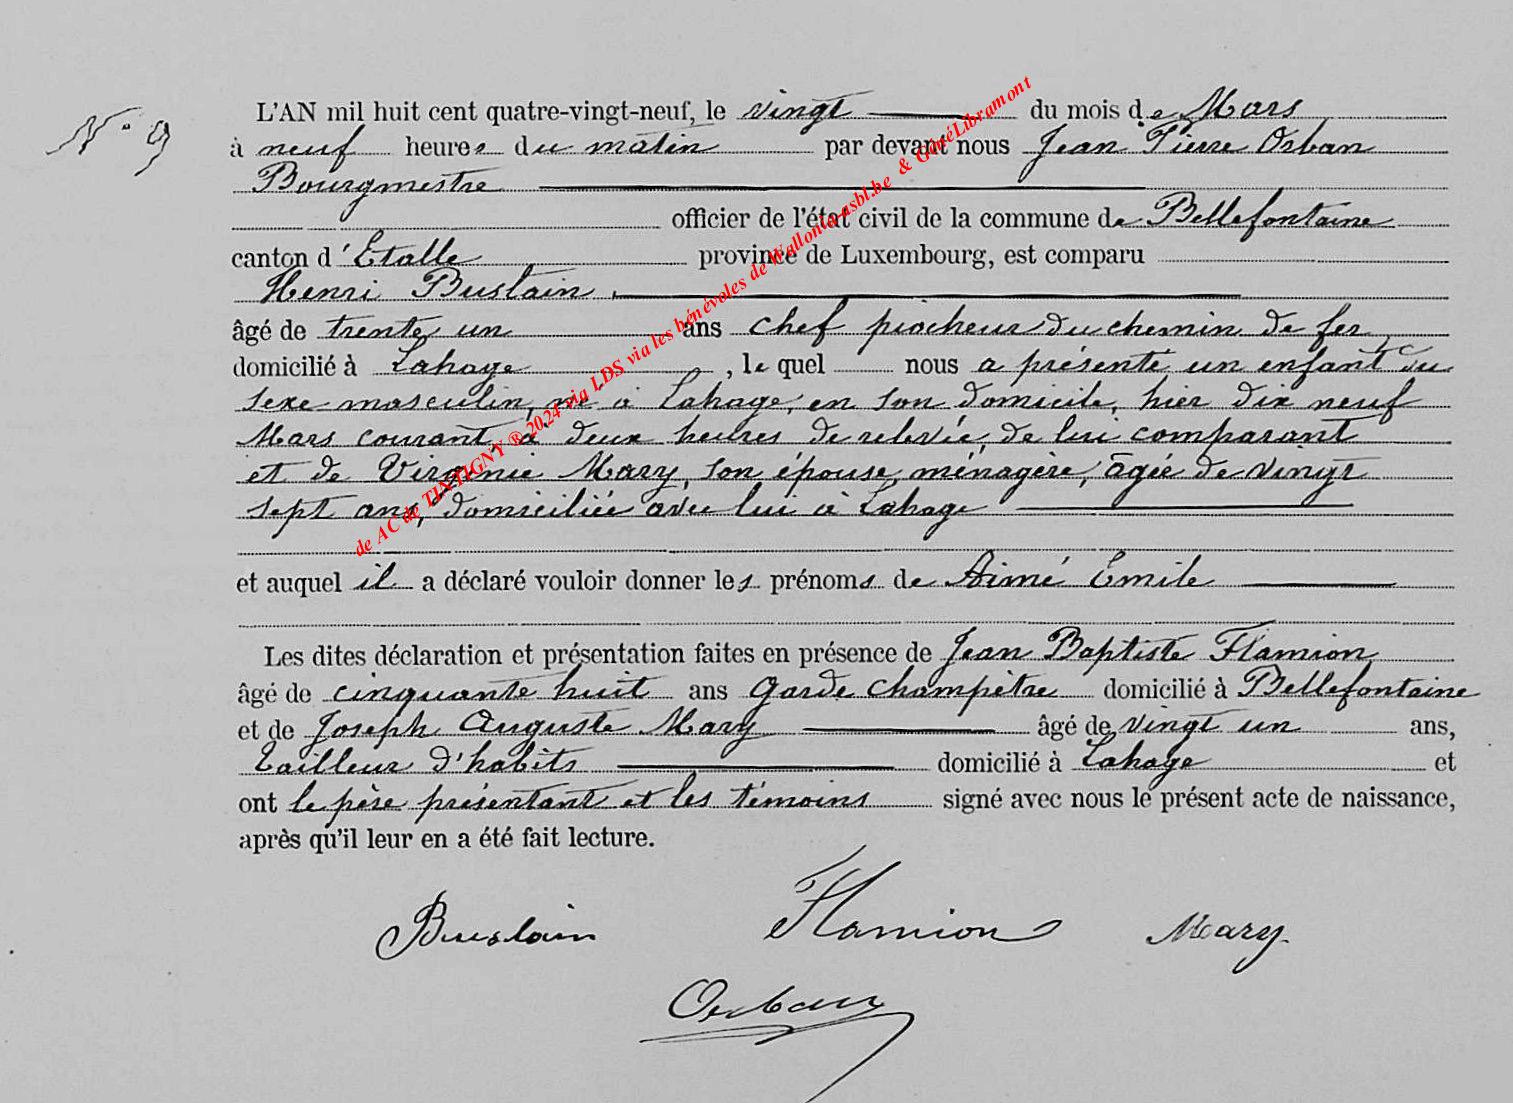 N° 9
L'AN mil huit cent quatre-vingt-neuf, le vingt du mois de Mars
à neuf heures du matin par devant nous Jean Pierre Orban
Bourgmestre
officier de l'état civil de la commune de Bellefontaine
canton d'Etalle province de Luxembourg, est comparu
Henri Buslain,
âgé de trente un ans chef piocheur du chemin de fer
domicilié à Lahage, le quel nous a présenté un enfant du
sexe masculin, né à Lahage, en son domicile, hier dix neuf
Mars courant, à deux heures de relevée, de lui comparant
et de Virginie Mary, son épouse, ménagère, âgée de vingt
sept ans, domiciliée avec lui à Lahage
et auquel il a déclaré vouloir donner les prénoms de Aimé Emile
Les dites déclaration et présentation faites en présence de Jean Baptiste Flamion
âgé de cinquante huit ans Garde Champêtre domicilié à Bellefontaine
et de Joseph Auguste Mary âgé de vingt un ans,
tailleur d'habits domicilié à Lahage et
ont le père présentant et les témoins signé avec nous le présent acte de naissance,
après qu'il leur en a été fait lecture.
Buslain Flamion Mary.
Orban
de AC de TINTIGNY ® 2024 via LDS via les bénévoles de Wallonia-asbl.be & GénéLibramont